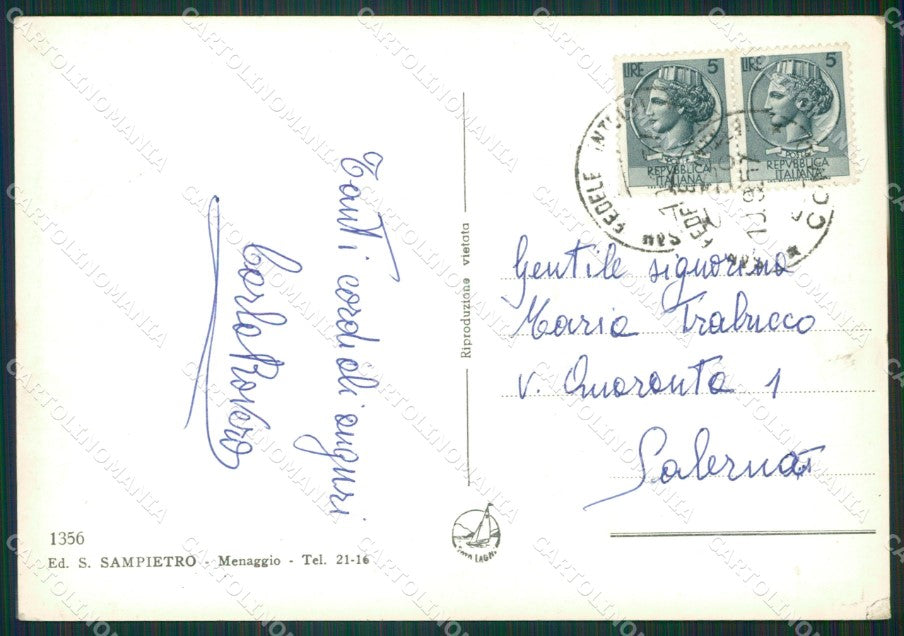 Tanti cordiali auguri
Carla Rovera
1356
Ed. S. SAMPIETRO - Menaggio - Tel. 21-16
Riproduzione vietata
LIRE 5
REPVBBLICA
ITALIANA
LIRE 5
REPVBBLICA
ITALIANA
SAN FEDELE INTELVI
Gentile signorina
Maria Trabucco
v. Quaranta 1
Salerno
CARTOLINOMANIA